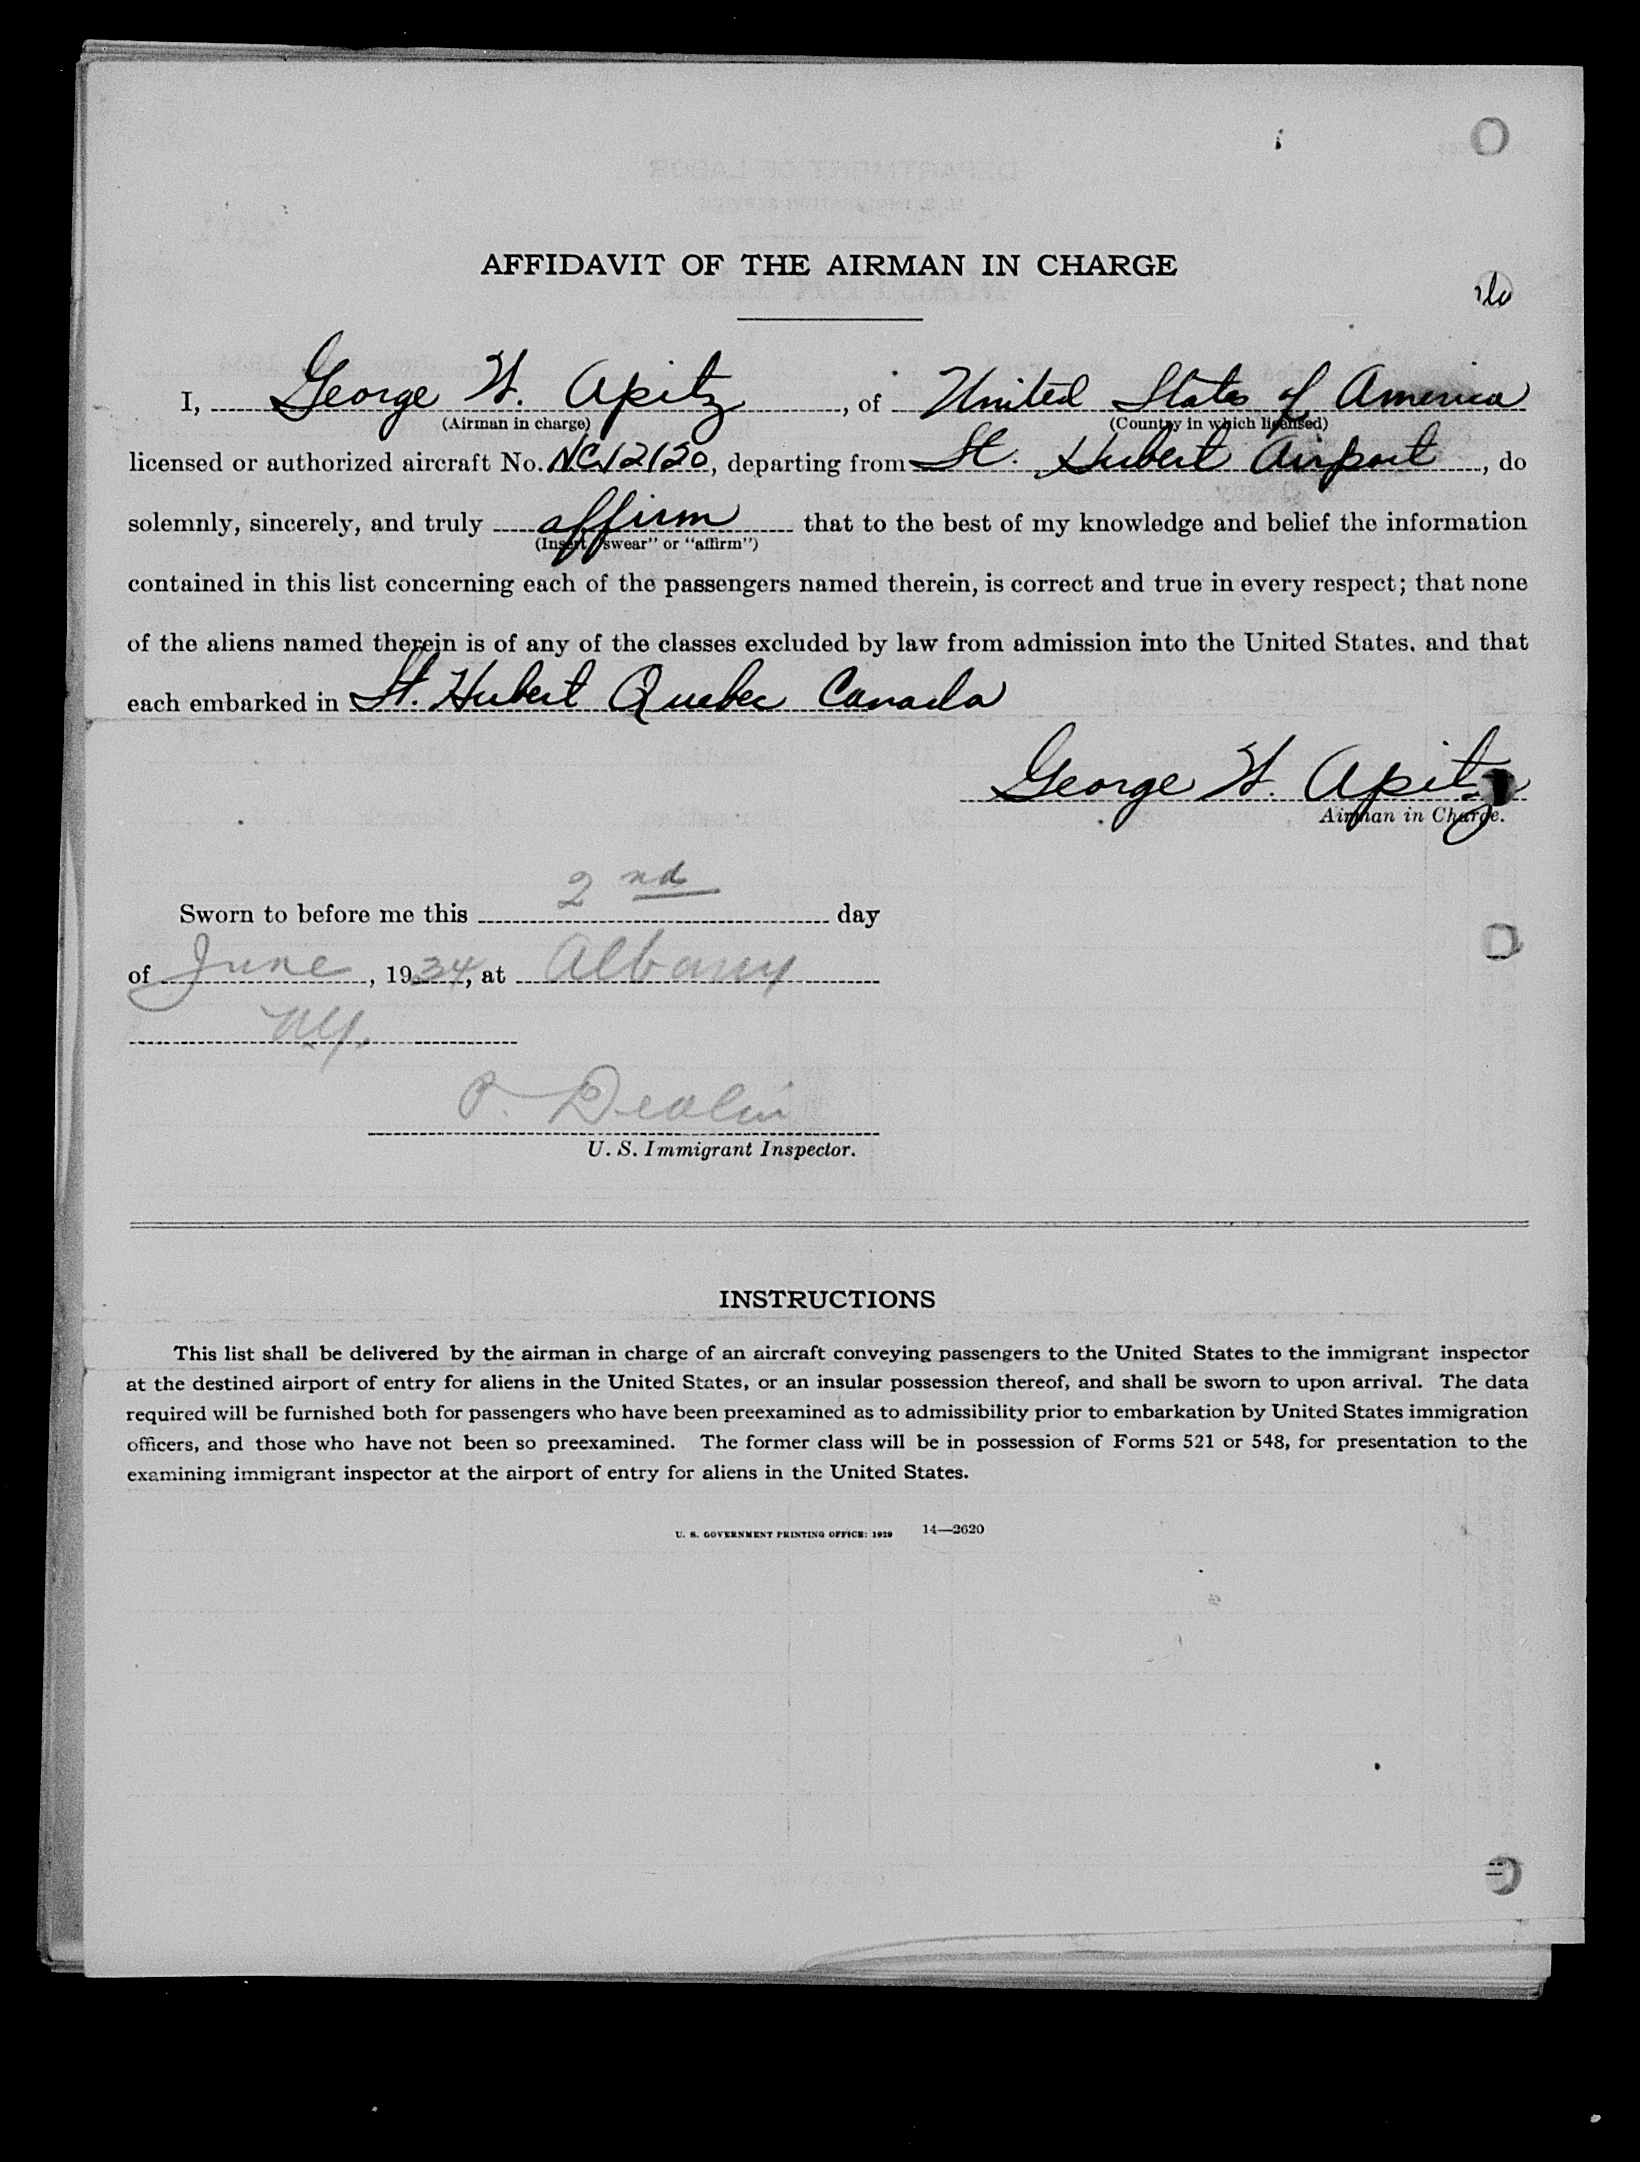 AFFIDAVIT OF THE AIRMAN IN CHARGE
I, George W. Apitz, of United States of America
(Airman in charge) (Country in which licensed)
licensed or authorized aircraft No. NC12120, departing from St. Hubert Airport, do
solemnly, sincerely, and truly affirm that to the best of my knowledge and belief the information
(Insert "swear" or "affirm")
contained in this list concerning each of the passengers named therein, is correct and true in every respect; that none
of the aliens named therein is of any of the classes excluded by law from admission into the United States, and that
each embarked in St. Hubert Quebec Canada
George W. Apitz
Airman in Charge.
Sworn to before me this 2nd day
of June, 1934, at Albany
N.Y.
P. Devlin
U. S. Immigrant Inspector.
INSTRUCTIONS
This list shall be delivered by the airman in charge of an aircraft conveying passengers to the United States to the immigrant inspector
at the destined airport of entry for aliens in the United States, or an insular possession thereof, and shall be sworn to upon arrival. The data
required will be furnished both for passengers who have been preexamined as to admissibility prior to embarkation by United States immigration
officers, and those who have not been so preexamined. The former class will be in possession of Forms 521 or 548, for presentation to the
examining immigrant inspector at the airport of entry for aliens in the United States.
U. S. GOVERNMENT PRINTING OFFICE: 1929 14—2620